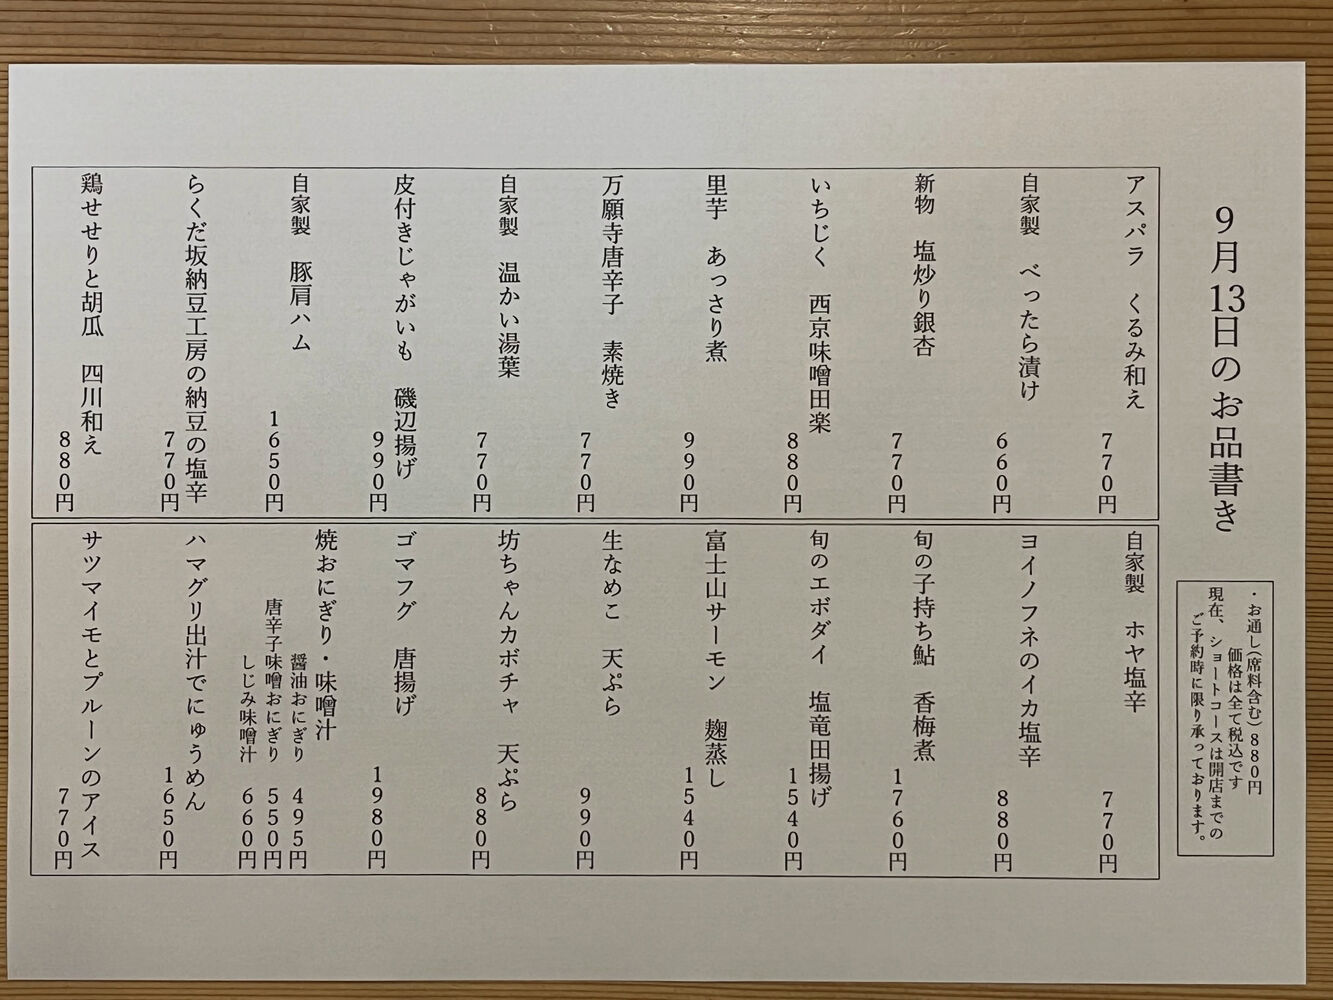 9月13日のお品書き
・お通し(席料含む)880円
価格は全て税込です
現在、ショートコースは開店までの
ご予約時に限り承っております。
アスパラ　くるみ和え
770円
自家製　べったら漬け
660円
新物　塩炒り銀杏
770円
いちじく　西京味噌田楽
880円
里芋　あっさり煮
990円
万願寺唐辛子　素焼き
770円
自家製　温かい湯葉
770円
皮付きじゃがいも　磯辺揚げ
990円
自家製　豚肩ハム
1650円
らくだ坂納豆工房の納豆の塩辛
770円
鶏せせりと胡瓜　四川和え
880円
自家製　ホヤ塩辛
770円
ヨイノフネのイカ塩辛
880円
旬の子持ち鮎　香梅煮
1760円
旬のエボダイ　塩竜田揚げ
1540円
富士山サーモン　麹蒸し
1540円
生なめこ　天ぷら
990円
坊ちゃんカボチャ　天ぷら
880円
ゴマフグ　唐揚げ
1980円
焼おにぎり・味噌汁
醤油おにぎり　495円
唐辛子味噌おにぎり　550円
しじみ味噌汁　660円
ハマグリ出汁でにゅうめん
1650円
サツマイモとプルーンのアイス
770円